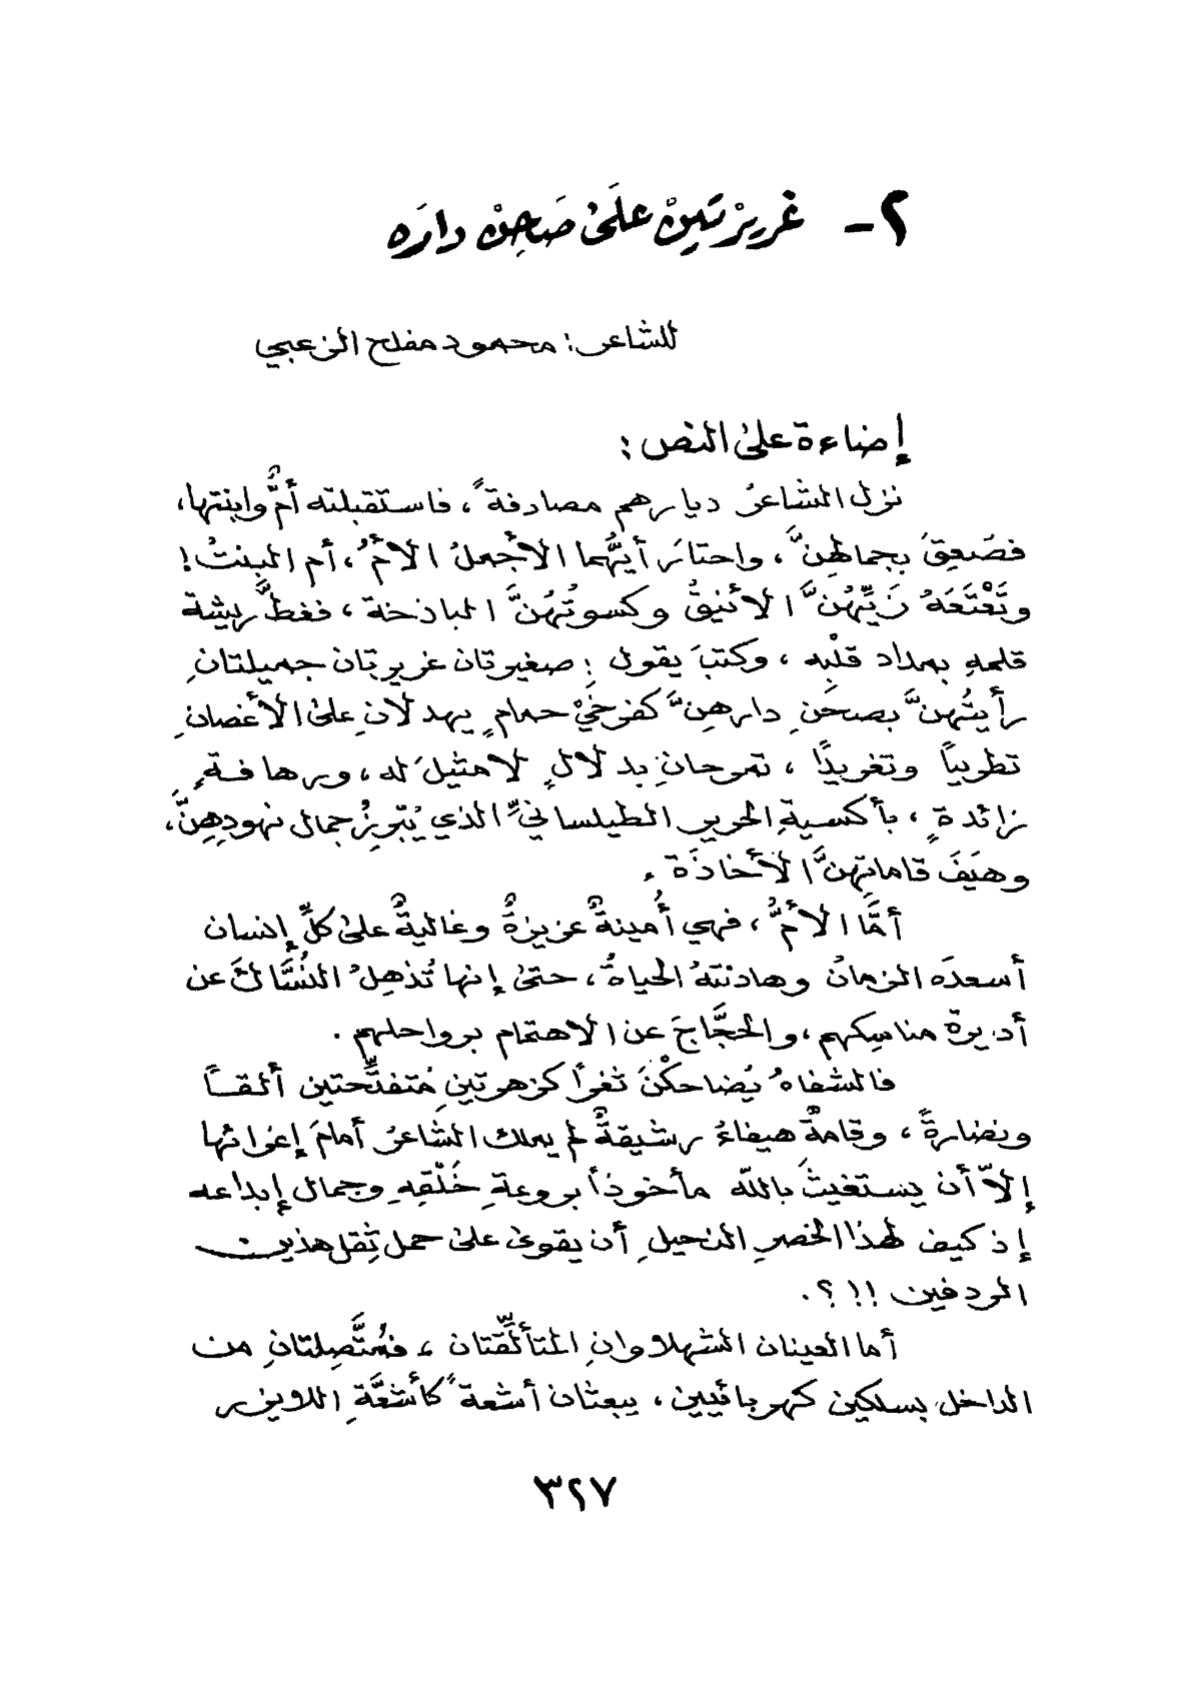 ٢- غريرْتَينْ علَىٰ صَاحِنْ دارَه
للشاعر: محمود مفلح الزعبي
إضاءة علىٰ النص:
نزل الشاعرُ ديارهم مصادفةً، فاستقبلته أمٌّ وابنتها،
فصَعِقَ بجمالهِنَّ، واحتارَ أيُّهما الأجملُ الأمُّ، أم البِنتُ!
وتَعْتَعَهُ زَيِّهُنَّ الأنيقُ وكسوتُهُنَّ الباذخة، فغطَّ ريشة
قلمهِ بمداد قلْبِه، وكتبَ يقول: صغيرتان غريرتان جميلتانِ
رأيتُهنَّ بصحَنِ دارهِنَّ كفرخَيْ حمامٍ يهدلانِ علىٰ الأغصانِ
تطريباً وتغريدًا، تمرحانِ بدلالٍ لامثيلَ له، ورهافةٍ
زائدةٍ، بأكسيةِ الحرير الطيلسانيِّ الذي يُبْرِزُ جمال نهودِهِنَّ،
وهيَفَ قاماتِهنَّ الأخاذَة.
أمَّا الأمُّ، فهي أُمينةٌ عزيزةٌ وغاليةٌ علىٰ كلِّ إنسان
أسعدَه الزمانُ وهادنتهُ الحياةُ، حتىٰ إنها تُذهِلُ النُسَّاكَ عن
أديرة مناسِكهم، والحجَّاجَ عن الاهتمام برواحلهم.
فالشفاهُ يُضاحكْنَ ثغراً كزهرتينِ مُتفتِّحتين ألقــاً
ونضارةً، وقامةٌ هيفاءُ رشيقةٌ لم يملك الشَاعرُ أمامَ إغرائها
إلاّ أن يستغيثَ باللّه مأخوذاً بروعةِ خَلْقِهِ وجمال إبداعه
إذ كيف لهذا الخصرِ النحيلِ أن يقوىٰ علىٰ حمل ثِقل هذين
الردفين !!؟.
أما العينان الشهلاوانِ المتألِّقتان، فمُتَّصِلتانِ من
الداخل بسلكين كهربائيين، يبعثان أشعةً كأشعَّةِ اللايزر
٣٢٧